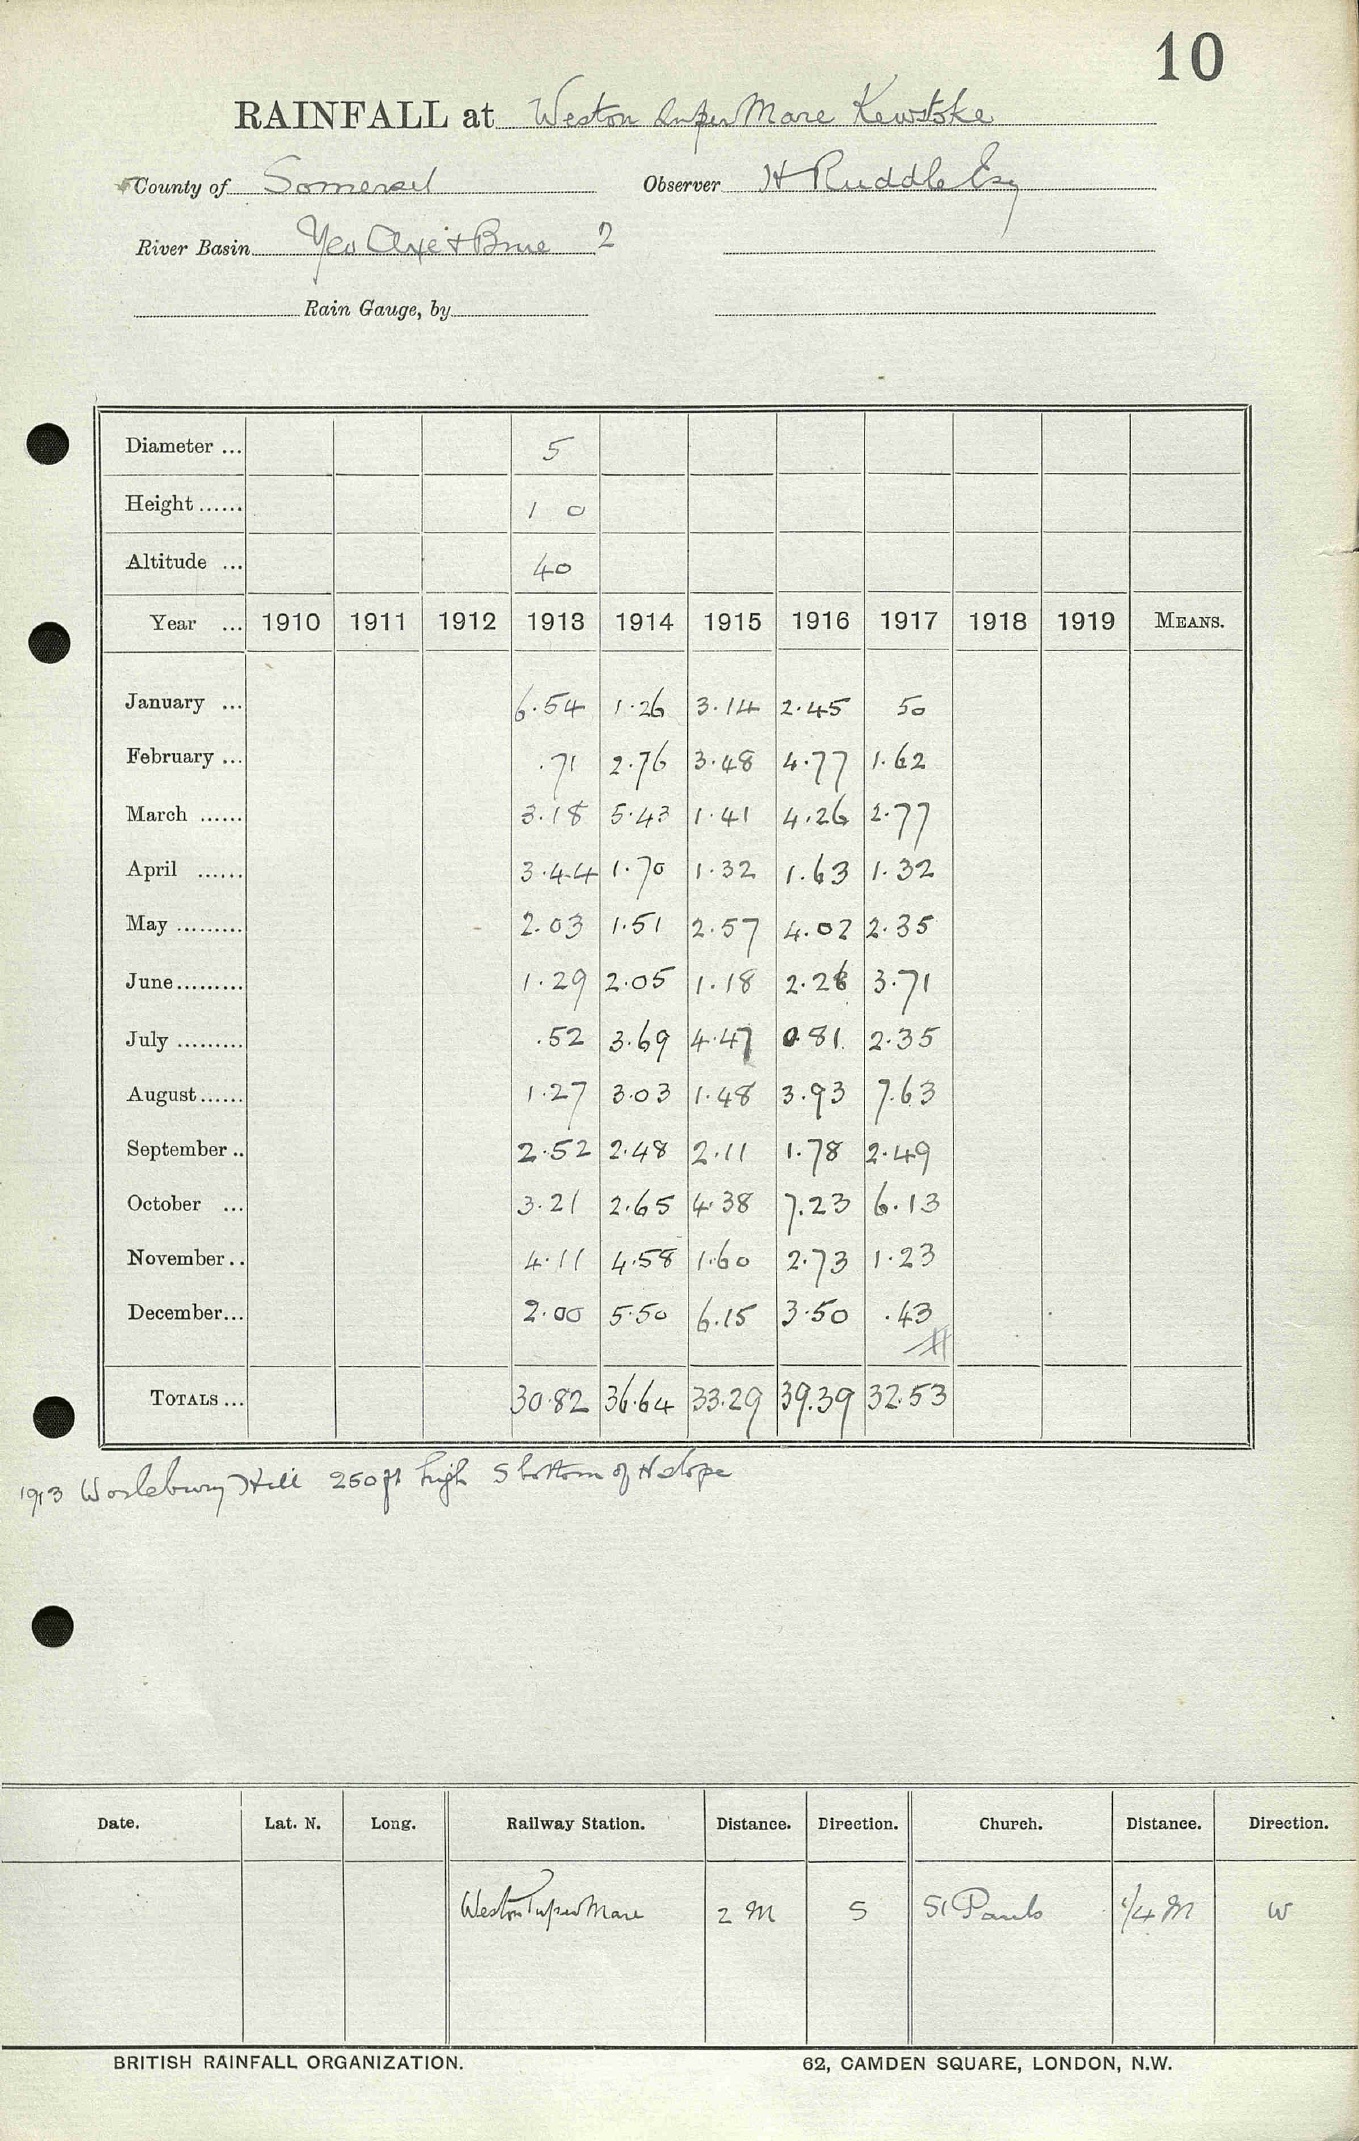 10
RAINFALL at Weston Super Mare Kewstoke
County of Somerset Observer H Ruddle Esq
River Basin Yeo Axe + Brue 2
Rain Gauge, by
Diameter ... 5
Height ...... 1 0
Altitude ... 40
Year ... 1910 1911 1912 1913 1914 1915 1916 1917 1918 1919 MEANS.
January ... 6.54 1.26 3.14 2.45 50
February ... .71 2.76 3.48 4.77 1.62
March ...... 3.18 5.43 1.41 4.26 2.77
April ...... 3.44 1.70 1.32 1.63 1.32
May ......... 2.03 1.51 2.57 4.02 2.35
June ......... 1.29 2.05 1.18 2.28 3.71
July ......... .52 3.69 4.47 0.81 2.35
August ...... 1.27 3.03 1.48 3.93 7.63
September .. 2.52 2.48 2.11 1.78 2.49
October ... 3.21 2.65 4.38 7.23 6.13
November .. 4.11 4.58 1.60 2.73 1.23
December ... 2.00 5.50 6.15 3.50 .43
TOTALS ... 30.82 36.64 33.29 39.39 32.53
1913 Worlebury Hill 250 ft high S bottom of N slope
Date. Lat. N. Long. Railway Station. Distance. Direction. Church. Distance. Direction.
Weston Super Mare 2 M S St Pauls 1/4 M W
BRITISH RAINFALL ORGANIZATION. 62, CAMDEN SQUARE, LONDON, N.W.